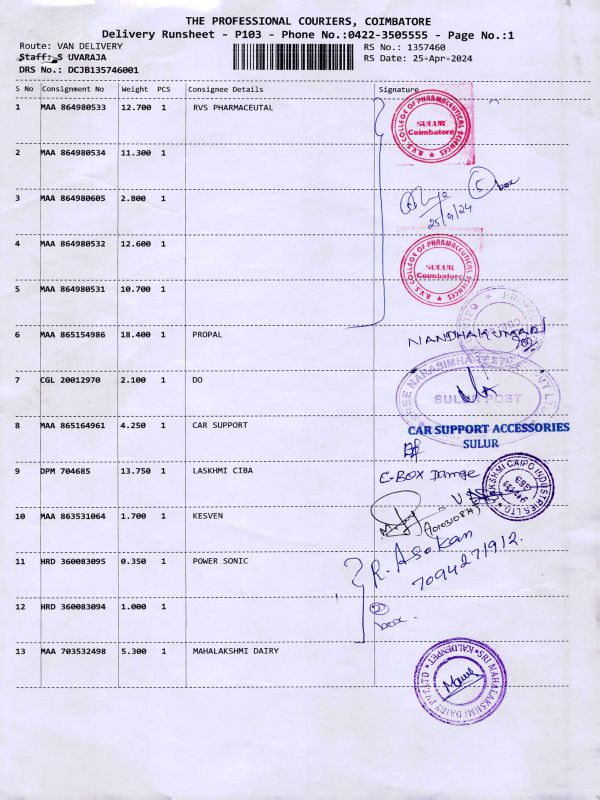 THE PROFESSIONAL COURIERS, COIMBATORE
Delivery Runsheet - P103 - Phone No.:0422-3505555 - Page No.:1
Route: VAN DELIVERY
RS No.: 1357460
Staff: S UVARAJA
RS Date: 25-Apr-2024
DRS No.: DCJB135746001
S No Consignment No Weight PCS Consignee Details Signature
1 MAA 864980533 12.700 1 RVS PHARMACEUTAL
R.V.S. COLLEGE OF PHARMACEUTICAL SCIENCES
SULUR
Coimbatore
2 MAA 864980534 11.300 1
3 MAA 864980605 2.800 1
5 box
25/4/24
4 MAA 864980532 12.600 1
R.V.S. COLLEGE OF PHARMACEUTICAL SCIENCES
SULUR
Coimbatore
5 MAA 864980531 10.700 1
6 MAA 865154986 18.400 1 PROPAL
NANDHAKUMAR
7 CGL 20012970 2.100 1 DO
SREE NARASIMHA TEXTILE PVT LTD
SULUR POST
8 MAA 865164961 4.250 1 CAR SUPPORT
CAR SUPPORT ACCESSORIES
SULUR
9 DPM 704685 13.750 1 LASKHMI CIBA
E-BOX Damge
LAKSHMI CAIPO INDUSTRIES LTD.
10 MAA 863531064 1.700 1 KESVEN
11 HRD 360083095 0.350 1 POWER SONIC
R. Asokan
7094271912.
12 HRD 360083094 1.000 1
2
box.
13 MAA 703532498 5.300 1 MAHALAKSHMI DAIRY
SRI MAHALAKSHMI DAIRY PVT LTD